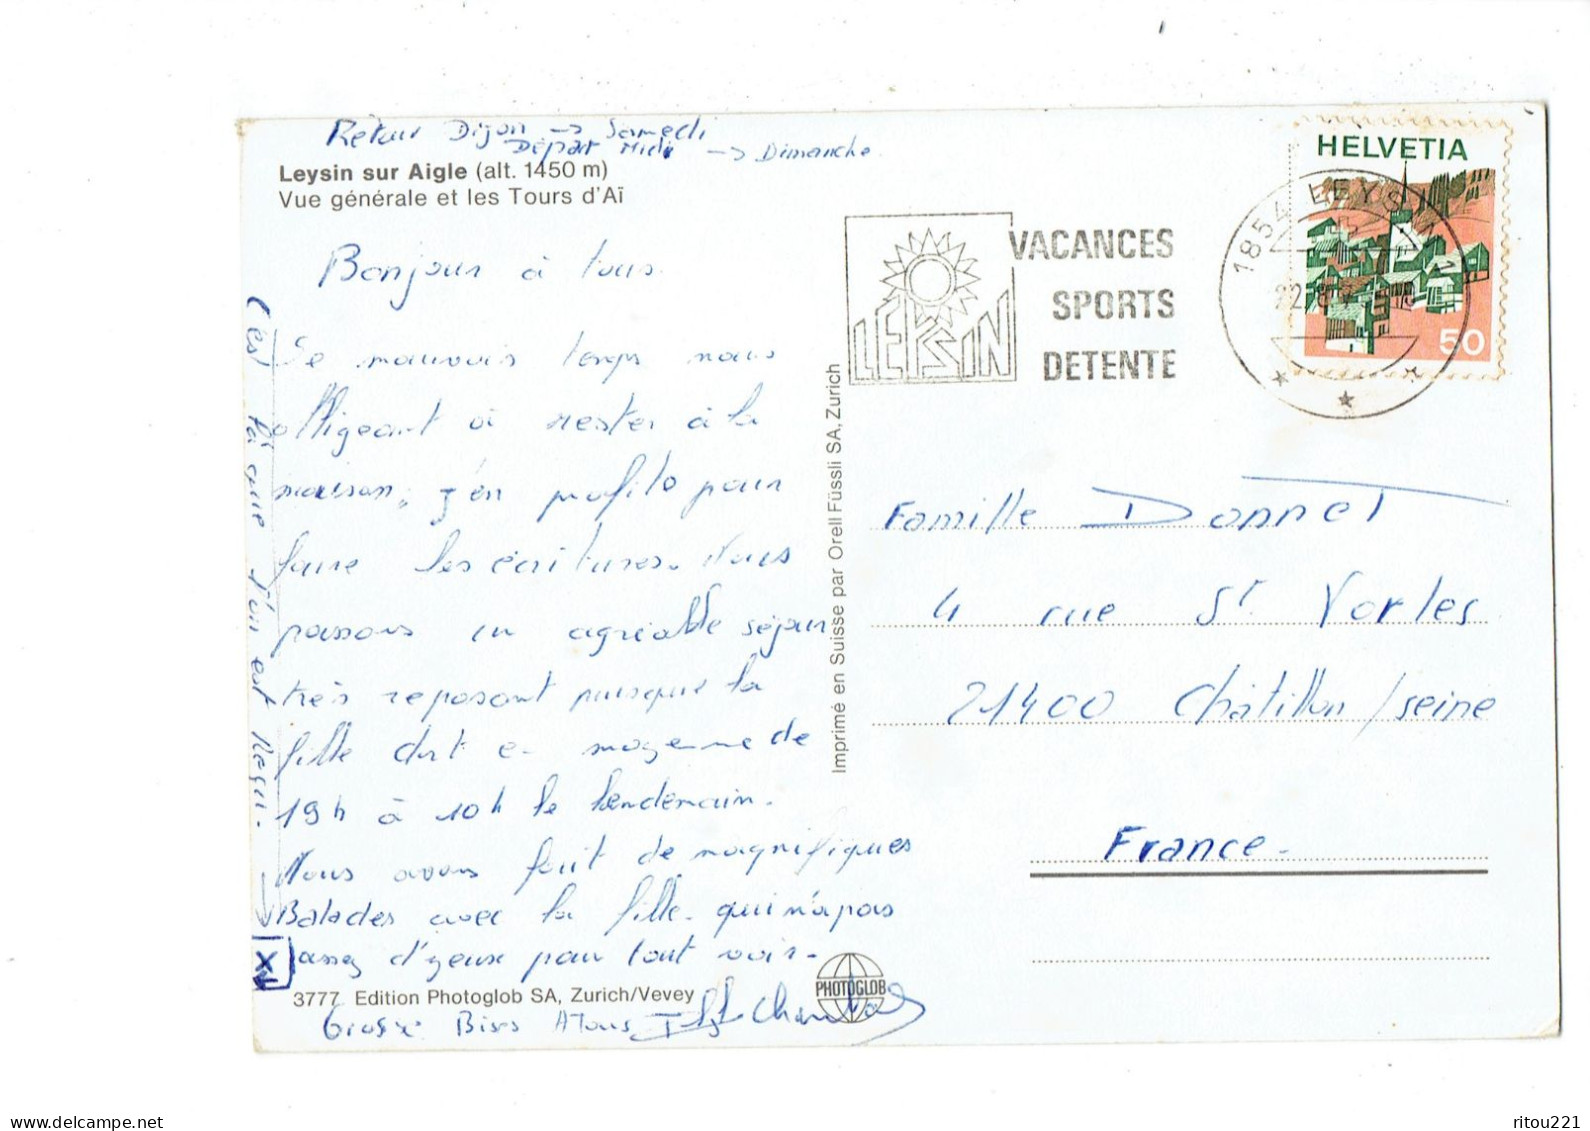 Retour Dijon -> Samedi
Départ Midi -> Dimanche
Leysin sur Aigle (alt. 1450 m)
Vue générale et les Tours d'Aï
Bonjour à tous.
Le mauvais temps nous
obligeant à rester à la
maison, j'en profite pour
faire les écritures. Nous
passons un agréable séjour
très reposant puisque la
fille dort en moyenne de
19h à 10h le lendemain.
Nous avons fait de magnifiques
Balades avec la fille qui n'a pas
assez d'yeux pour tout voir.
Grosse Bises A Tous
C'est là que l'on est Reçu.
X
3777 Edition Photoglob SA, Zurich/Vevey
PHOTOGLOB
Imprimé en Suisse par Orell Füssli SA, Zurich
LEYSIN
VACANCES
SPORTS
DETENTE
1854 LEYSIN
HELVETIA
50
Famille Donnet
4 rue St. Vorles
21400 Châtillon/seine
France.
ritou221